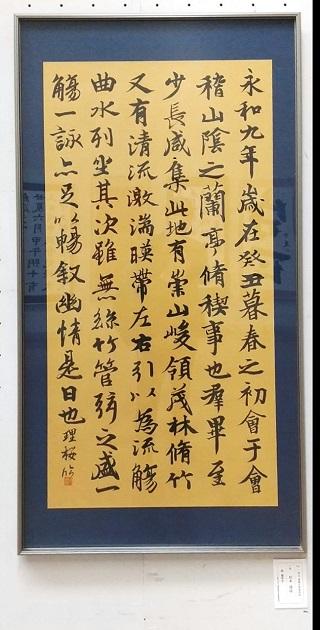 永和九年歳在癸丑暮春之初會于會
稽山陰之蘭亭脩稧事也羣畢至
少長咸集此地有崇山峻領茂林脩竹
又有清流激湍暎帶左右引以為流觴
曲水列坐其次雖無絲竹管弦之盛一
觴一詠亦足以暢叙幽情是日也 理桜臨